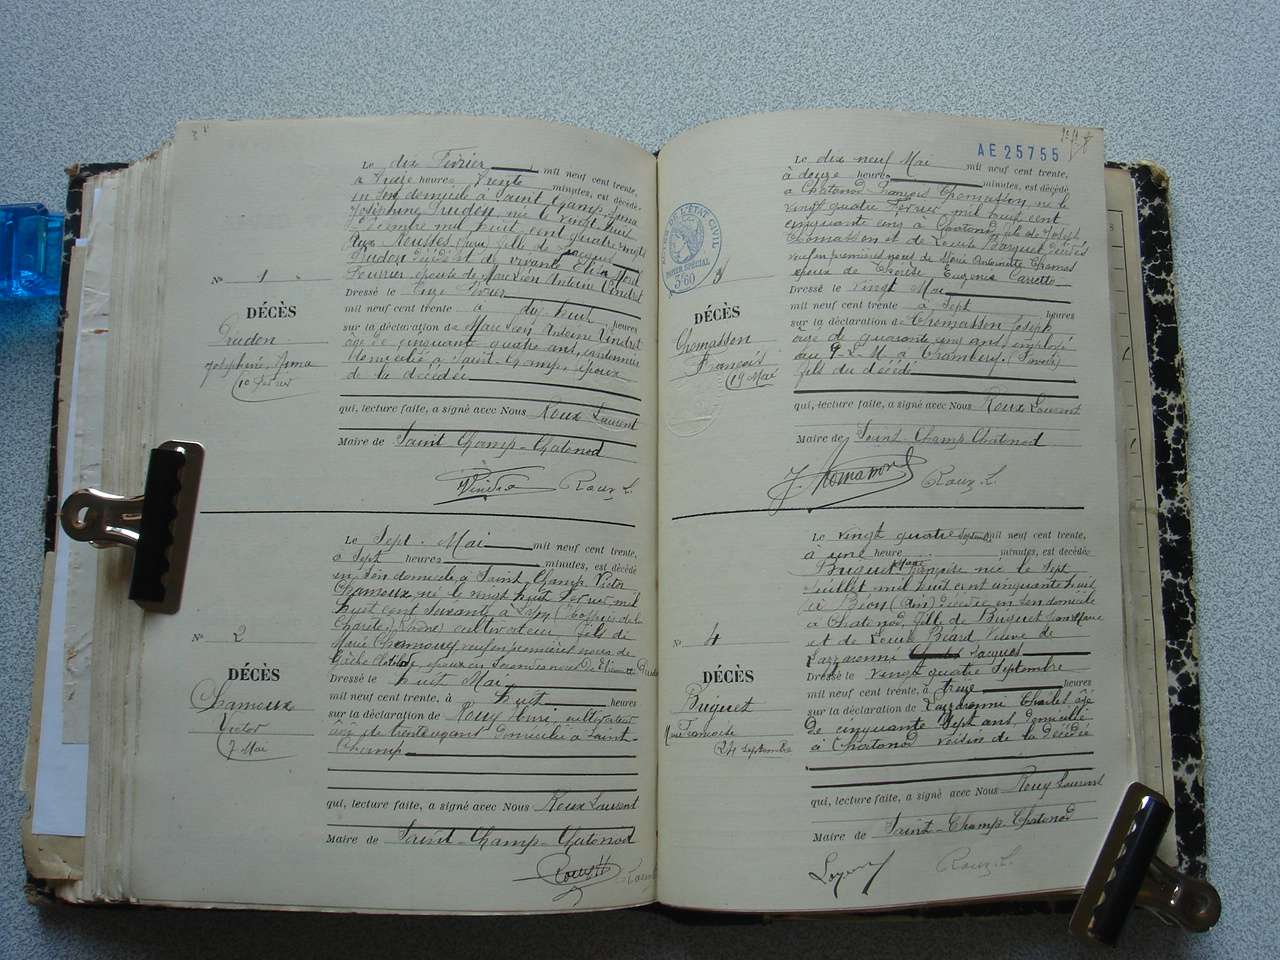 Le dix Février mil neuf cent trente,
à onze heures trente minutes, est décédé
en son domicile à Saint Champ Anna
Joséphine Prudon, née le vingt huit
Décembre mil huit cent quatre vingt
aux Neusses (Jura) fille de Jacques
Prudon décédé et de vivante Elisa Mond
Fourrier épouse de Marc Léon Antoine Vindret
N° 1
DÉCÈS
Prudon
Joséphine, Anna
10 Février
Dressé le Onze Février
mil neuf cent trente à dix huit heures
sur la déclaration de Marc Léon Antoine Vindret
âgé de cinquante quatre ans, cordonnier
domicilié à Saint-Champ, époux
de la décédée
qui, lecture faite, a signé avec Nous Roux Laurent
Maire de Saint Champ-Chatonod
Vindret Roux L.
Le Sept Mai mil neuf cent trente,
à Sept heures minutes, est décédé
en son domicile à Saint Champ Victor
Chamoux, né le vingt huit Février mil
huit cent soixante à Lyon (Hospice de la
Charité) (Rhône) cultivateur fils de
Marie Chamoux veuf en premières noces de
Clotilde, époux en secondes noces de Etiennette
N° 2
DÉCÈS
Chamoux
Victor
7 Mai
Dressé le huit Mai
mil neuf cent trente, à huit heures
sur la déclaration de Roux Henri, cultivateur
âgé de trente ans domicilié à Saint-
Champ
qui, lecture faite, a signé avec Nous Roux Laurent
Maire de Saint-Champ-Chatonod
Roux H Roux
AE25755
Le dix neuf Mai mil neuf cent trente,
à douze heures minutes, est décédé
à Chatonod François Thomasson, né le
vingt quatre Février mil huit cent
cinquante cinq à Chatonod, fils de Joseph
Thomasson et de Louise Barquet décédés
veuf en premières noces de Marie Antoinette Chamas
époux de Eugénie Canetto
TIMBRE DE L'ÉTAT CIVIL
PAPIER SPÉCIAL
3f60
3
DÉCÈS
Thomasson
François
19 Mai
Dressé le vingt Mai
mil neuf cent trente à Sept heures
sur la déclaration de Thomasson Joseph
âgé de quarante cinq ans, employé
au P-L-M à Chambéry (Savoie)
fils du décédé
qui, lecture faite, a signé avec Nous Roux Laurent
Maire de Saint-Champ-Chatonod
J. Thomasson Roux L.
Le vingt quatre Septembre mil neuf cent trente,
à une heure minutes, est décédée
Buguet Marie Françoise née le Sept
Juillet mil huit cent cinquante huit
à (Ain) décédée en son domicile
à Chatonod, fille de Buguet Jean Marie
et de Louise Béard Veuve de
Lazzaronni Jacques
N° 4
DÉCÈS
Buguet
Marie Françoise
24 septembre
Dressé le vingt quatre Septembre
mil neuf cent trente, à treize heures
sur la déclaration de Lazzaronni Charles âgé
de cinquante Sept ans domicilié
à Chatonod voisin de la décédée
qui, lecture faite, a signé avec Nous Roux Laurent
Maire de Saint-Champ-Chatonod
Roux L.